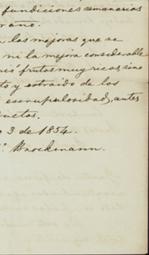 fundiciones semanarias
año.
las mejoras que se
ni la mejora considerable
frutos muy ricos, sino
to y extraido de los
escrupulosidad, antes
3 de 1854.
Brockmann.